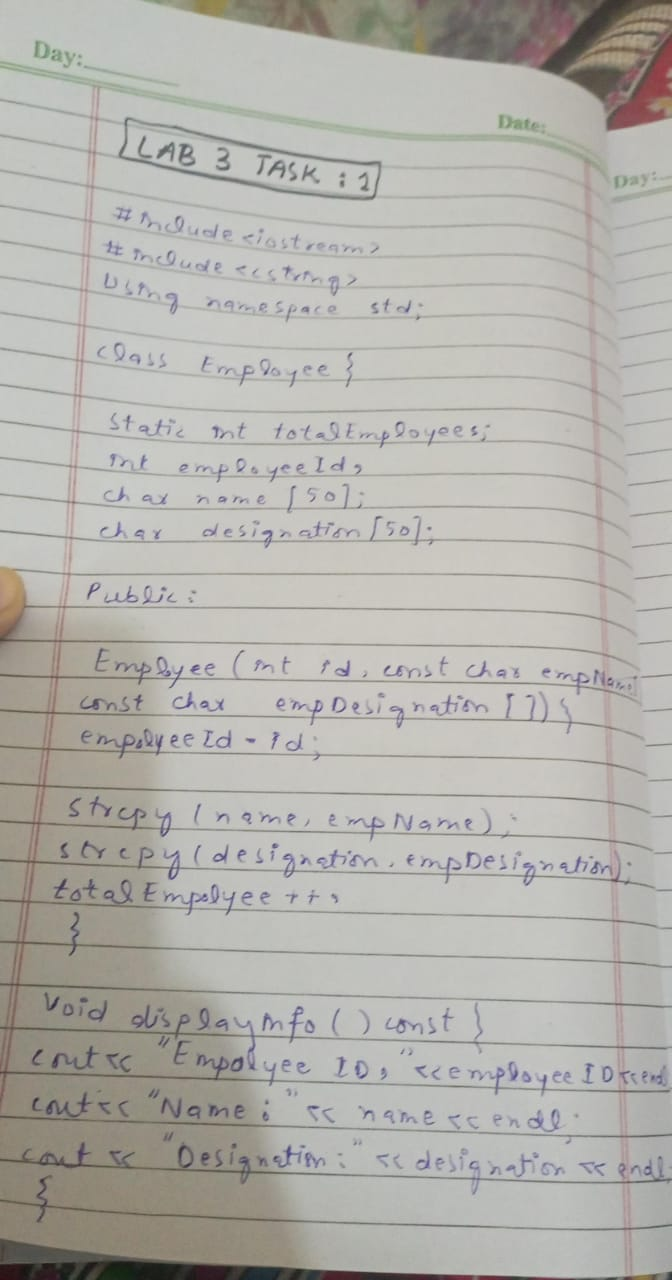 Day:
Date:
Day:
LAB 3 TASK : 1
#include <iostream>
#include <cstring>
Using namespace std;
class Employee {
static int totalEmployees;
int employeeId;
char name [50];
char designation [50];
Public :
Emplyee (int id, const char empName[]
const char empDesignation [ ]) {
empolyeeId = id;
strcpy (name, empName);
strcpy (designation, empDesignation);
totalEmpolyee ++;
}
void displayinfo ( ) const {
cout << "Empolyee ID: " << employee ID << end
cout << "Name : " << name << endl;
cout << "Designation : " << designation << endl;
}